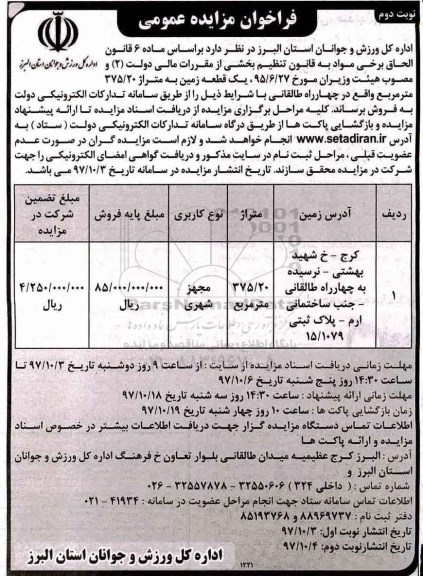 نوبت دوم
فراخوان مزایده عمومی
اداره کل ورزش و جوانان استان البرز
اداره کل ورزش و جوانان استان البرز در نظر دارد براساس ماده ۶ قانون
الحاق برخی مواد به قانون تنظیم بخشی از مقررات مالی دولت (۲) و
مصوب هیئت وزیران مورخ ۹۵/۶/۲۷ ، یک قطعه زمین به متراژ ۳۷۵/۲۰
مترمربع واقع در چهارراه طالقانی با شرایط ذیل را از طریق سامانه تدارکات الکترونیکی دولت
به فروش برساند. کلیه مراحل برگزاری مزایده از دریافت اسناد مزایده تا ارائه پیشنهاد
مزایده و بازگشایی پاکت ها از طریق درگاه سامانه تدارکات الکترونیکی دولت ( ستاد ) به
آدرس www.setadiran.ir انجام خواهد شد و لازم است مزایده گران در صورت عدم
عضویت قبلی ، مراحل ثبت نام در سایت مذکور و دریافت گواهی امضای الکترونیکی را جهت
شرکت در مزایده محقق سازند. تاریخ انتشار مزایده در سامانه تاریخ ۹۷/۱۰/۳ می باشد.
ردیف	آدرس زمین	متراژ	نوع کاربری	مبلغ پایه فروش	مبلغ تضمین شرکت در مزایده
۱	کرج - خ شهید بهشتی - نرسیده به چهارراه طالقانی - جنب ساختمانی ارم - پلاک ثبتی ۱۵/۱۰۷۹	۳۷۵/۲۰ مترمربع	مجهز شهری	۸۵/۰۰۰/۰۰۰/۰۰۰ ریال	۴/۲۵۰/۰۰۰/۰۰۰ ریال
مهلت زمانی دریافت اسناد مزایده از سایت : از ساعت ۹ روز دوشنبه تاریخ ۹۷/۱۰/۳ تا
ساعت ۱۴:۳۰ روز پنج شنبه تاریخ ۹۷/۱۰/۶
مهلت زمانی ارائه پیشنهاد : ساعت ۱۴:۳۰ روز سه شنبه تاریخ ۹۷/۱۰/۱۸
زمان بازگشایی پاکت ها : ساعت ۱۰ روز چهار شنبه تاریخ ۹۷/۱۰/۱۹
اطلاعات تماس دستگاه مزایده گزار جهت دریافت اطلاعات بیشتر در خصوص اسناد
مزایده و ارائه پاکت ها
آدرس : البرز کرج عظیمیه میدان طالقانی بلوار تعاون خ فرهنگ اداره کل ورزش و جوانان
استان البرز و
شماره تماس : ( داخلی ۳۲۴ ) ۳۲۵۵۰۶۰۶ - ۳۲۵۵۷۸۷۸ - ۰۲۶
اطلاعات تماس سامانه ستاد جهت انجام مراحل عضویت در سامانه : ۴۱۹۳۴ - ۰۲۱
دفتر ثبت نام : ۸۸۹۶۹۷۳۷ و ۸۵۱۹۳۷۶۸
تاریخ انتشار نوبت اول: ۹۷/۱۰/۳
تاریخ انتشارنوبت دوم: ۹۷/۱۰/۴
۱۲۲۱
اداره کل ورزش و جوانان استان البرز